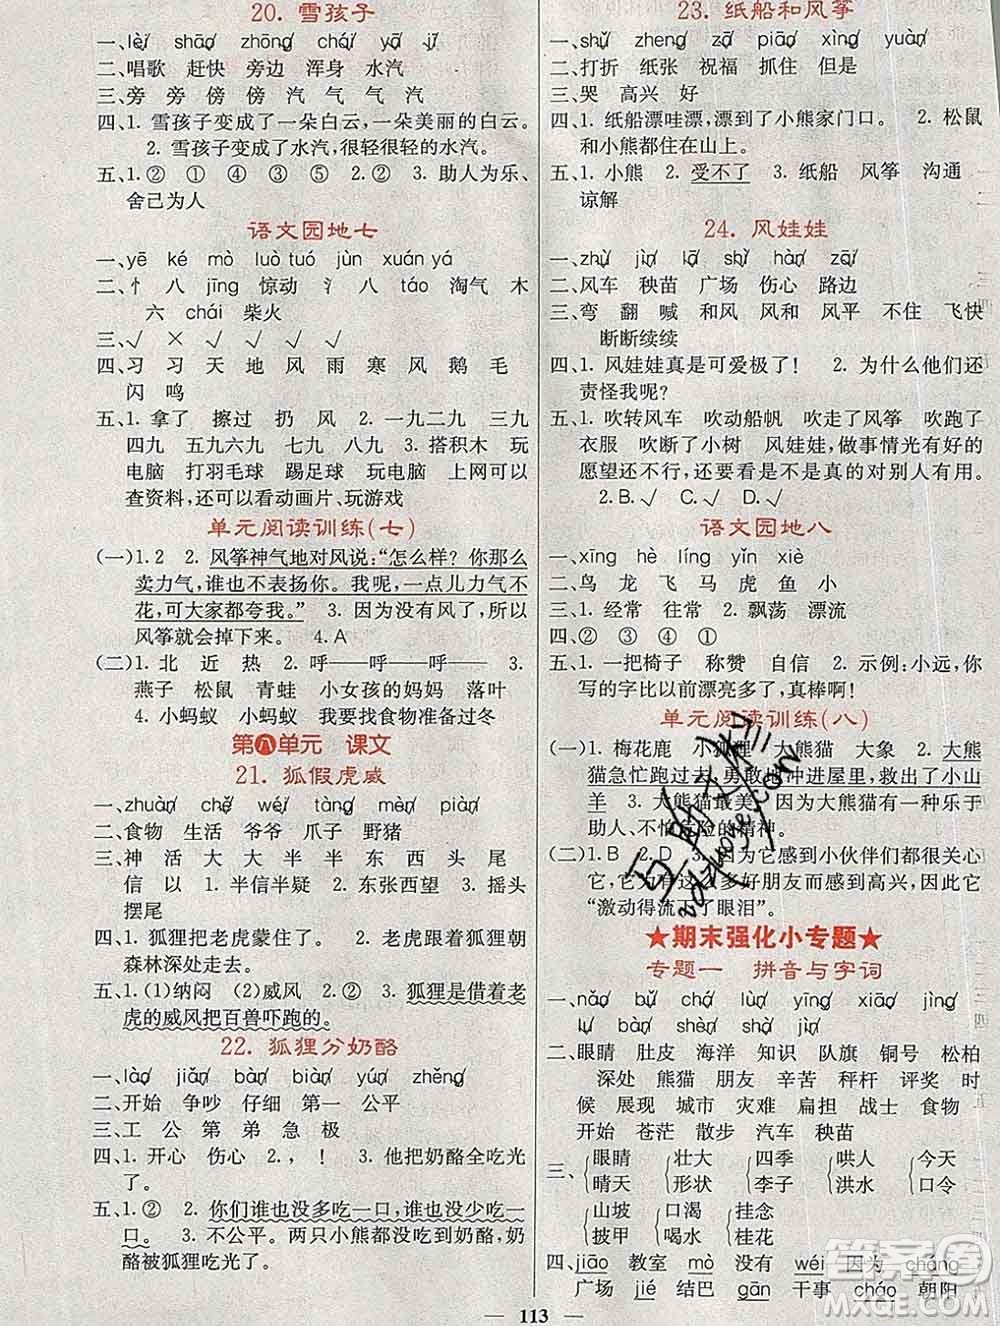 20. 雪孩子
一、lèi shāo zhōng chái yā jǐ
二、唱歌 赶快 旁边 浑身 水汽
三、旁 旁 傍 傍 汽 气 气 汽
四、1. 雪孩子变成了一朵白云,一朵美丽的白云。
2. 雪孩子变成了水汽,很轻很轻的水汽。
五、1. ② ① ④ ⑤ ③ 2. ② 3. 助人为乐、
舍己为人
语文园地七
一、yē ké mò luò tuó jùn xuán yá
二、忄 八 jīng 惊动 氵 八 táo 淘气 木
六 chái 柴火
三、√ × √ √
四、习 习 天 地 风 雨 寒 风 鹅 毛
闪 鸣
五、1. 拿了 擦过 扔 风 2. 一九二九 三九
四九 五九六九 七九 八九 3. 搭积木 玩
电脑 打羽毛球 踢足球 玩电脑 上网可以
查资料,还可以看动画片、玩游戏
单元阅读训练(七)
(一)1. 2 2. 风筝神气地对风说:“怎么样?你那么
卖力气,谁也不表扬你。我呢,一点儿力气不
花,可大家都夸我。” 3. 因为没有风了,所以
风筝就会掉下来。 4. A
(二)1. 北 近 热 2. 呼——呼——呼—— 3.
燕子 松鼠 青蛙 小女孩的妈妈 落叶
4. 小蚂蚁 小蚂蚁 我要找食物准备过冬
第八单元 课文
21. 狐假虎威
一、zhuàn chě wéi tàng mèn piàn
二、食物 生活 爷爷 爪子 野猪
三、神 活 大 大 半 半 东 西 头 尾
信 以 1. 半信半疑 2. 东张西望 3. 摇头
摆尾
四、1. 狐狸把老虎蒙住了。 2. 老虎跟着狐狸朝
森林深处走去。
五、1. (1)纳闷 (2)威风 2. ② 3. 狐狸是借着老
虎的威风把百兽吓跑的。
22. 狐狸分奶酪
一、lào jiǎn bàn biàn yún zhěng
二、开始 争吵 仔细 第一 公平
三、工 公 第 弟 急 极
四、1. 开心 伤心 2. , ! 3. 他把奶酪全吃光
了。
五、1. ② 2. 你们谁也没多吃一口,谁也没少吃一
口。 3. 不公平。两只小熊都没吃到奶酪,奶
酪被狐狸吃光了。
23. 纸船和风筝
一、shǔ zheng zā piāo xìng yuàn
二、打折 纸张 祝福 抓住 但是
三、哭 高兴 好
四、1. 纸船漂哇漂,漂到了小熊家门口。 2. 松鼠
和小熊都住在山上。
五、1. 小熊 2. 受不了 3. 纸船 风筝 沟通
谅解
24. 风娃娃
一、zhù jìn là shì hàn zì
二、风车 秧苗 广场 伤心 路边
三、弯 翻 喊 和风 风和 风平 不住 飞快
断断续续
四、1. 风娃娃真是可爱极了! 2. 为什么他们还
责怪我呢?
五、1. 吹转风车 吹动船帆 吹走了风筝 吹跑了
衣服 吹断了小树 风娃娃,做事情光有好的
愿望还不行,还要看是不是真的对别人有用。
2. B. √ C. √ D. √
语文园地八
一、xīng hè líng yǐn xiè
二、鸟 龙 飞 马 虎 鱼 小
三、1. 经常 往常 2. 飘荡 漂流
四、② ③ ④ ①
五、1. 一把椅子 称赞 自信 2. 示例:小远,你
写的字比以前漂亮多了,真棒啊!
单元阅读训练(八)
(一)1. 梅花鹿 小狐狸 大熊猫 大象 2. 大熊
猫急忙跑过去,勇敢地冲进屋里,救出了小山
羊 3. 大熊猫最美,因为大熊猫有一种乐于
助人、不怕危险的精神。
(二)1. B 2. D 3. 因为它感到小伙伴们都很关心
它,它为有这么多好朋友而感到高兴,因此它
“激动得流下了眼泪”。
★期末强化小专题★
专题一 拼音与字词
一、nǎo bǔ chá lù yīng xiāo jìng
lù bàn shé shā jì
二、眼睛 肚皮 海洋 知识 队旗 铜号 松柏
深处 熊猫 朋友 辛苦 秤杆 评奖 时
候 展现 城市 灾难 扁担 战士 食物
开始 苍茫 散步 汽车 秧苗
三、眼睛 壮大 四季 哄人 今天
晴天 形状 李子 洪水 口令
山坡 口渴 挂念
披甲 喝水 桂花
四、jiāo 教室 mò 没有 wéi 因为 chǎng
广场 jié 结巴 gān 干事 cháo 朝阳
113
答案圈
MXQE.COM